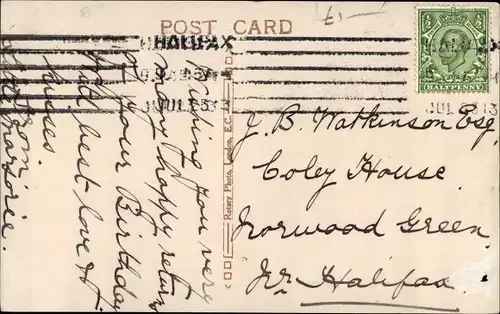 POST CARD
£1-
HALIFAX
JUL 3 13
HALIFAX
JUL 3 13
HALFPENNY
Wishing you very
many happy returns
of your Birthday
with best love &
kisses
from
Marjorie.
Rotary Photo, London, E.C.
J. B. Watkinson Esq.
Coley House
Norwood Green
Nr Halifax